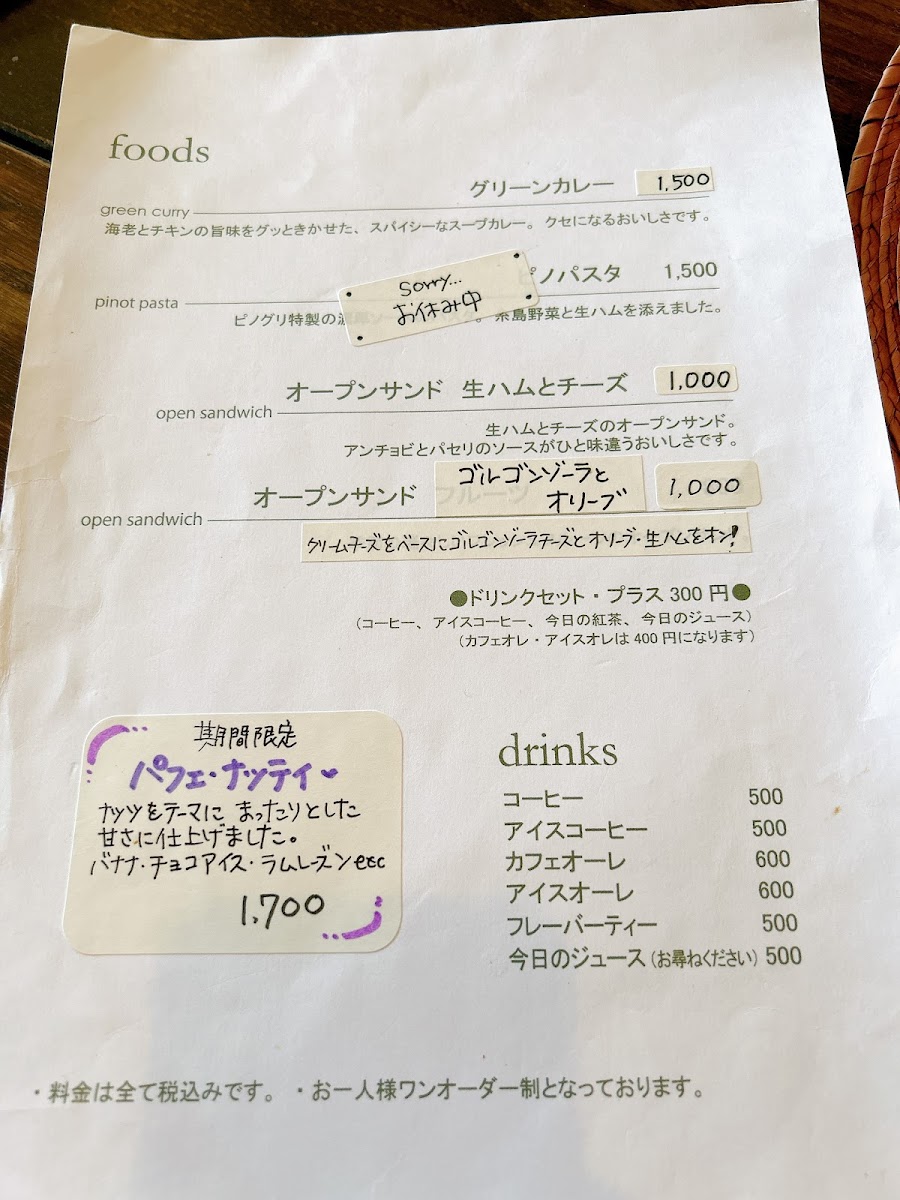 foods
グリーンカレー 1,500
green curry
海老とチキンの旨味をグッときかせた、スパイシーなスープカレー。クセになるおいしさです。
ピノパスタ 1,500
sorry...
お休み中
pinot pasta
ピノグリ特製の濃厚ソ 。糸島野菜と生ハムを添えました。
オープンサンド 生ハムとチーズ 1,000
open sandwich
生ハムとチーズのオープンサンド。
アンチョビとパセリのソースがひと味違うおいしさです。
オープンサンド ゴルゴンゾーラと
オリーブ 1,000
open sandwich
クリームチーズをベースにゴルゴンゾーラチーズとオリーブ・生ハムをオン!
●ドリンクセット・プラス 300 円●
(コーヒー、アイスコーヒー、今日の紅茶、今日のジュース)
(カフェオレ・アイスオレは 400 円になります)
期間限定
パフェ・ナッティ♥
ナッツをテーマに まったりとした
甘さに仕上げました。
バナナ・チョコアイス・ラムレーズンetc
1,700
drinks
コーヒー 500
アイスコーヒー 500
カフェオーレ 600
アイスオーレ 600
フレーバーティー 500
今日のジュース(お尋ねください) 500
・料金は全て税込みです。・お一人様ワンオーダー制となっております。